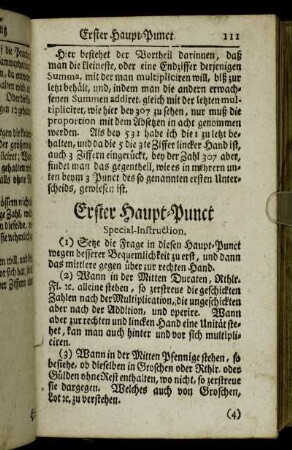 Erster Haupt-Punct. 111
Hier bestehet der Vortheil darinnen, daß
man die kleineste, oder eine Endziffer derjenigen
Summa, mit der man multipliciren will, biß zur
letzt behält, und, indem man die andern erwach-
senen Summen addiret, gleich mit der letzten mul-
tipliciret, wie hier bey 307 zu sehen, nur muß die
proportion mit dem Absetzen in acht genommen
werden. Als bey 531 habe ich die 1 zu letzt be-
halten, und da die 5 die 3te Ziffer lincker Hand ist,
auch 3 Ziffern eingerückt, bey der Zahl 307 aber,
findet man das gegentheil, wie es in mehrern un-
ten beym 3 Punct des so genannten ersten Unter-
scheids, gewiesen ist.
Erster Haupt-Punct
Special-Instruction.
(1) Setze die Frage in diesen Haupt-Punct
wegen besserer Bequemlichkeit zu erst, und dann
das mittlere gegen über zur rechten Hand.
(2) Wann in der Mitten Ducaten, Rthlr.
Fl. ꝛc. alleine stehen, so zerstreue die geschickten
Zahlen nach der Multiplication, die ungeschickten
aber nach der Addition, und operire. Wann
aber zur rechten und lincken Hand eine Unität ste-
het, kan man auch hinter und vor sich multipli-
ciren.
(3) Wann in der Mitten Pfennige stehen, so
besiehe, ob dieselben in Groschen oder Rthlr. oder
Gülden ohne Rest enthalten, wo nicht, so zerstreue
sie dargegen. Welches auch von Groschen,
Lot ꝛc. zu verstehen.
(4)